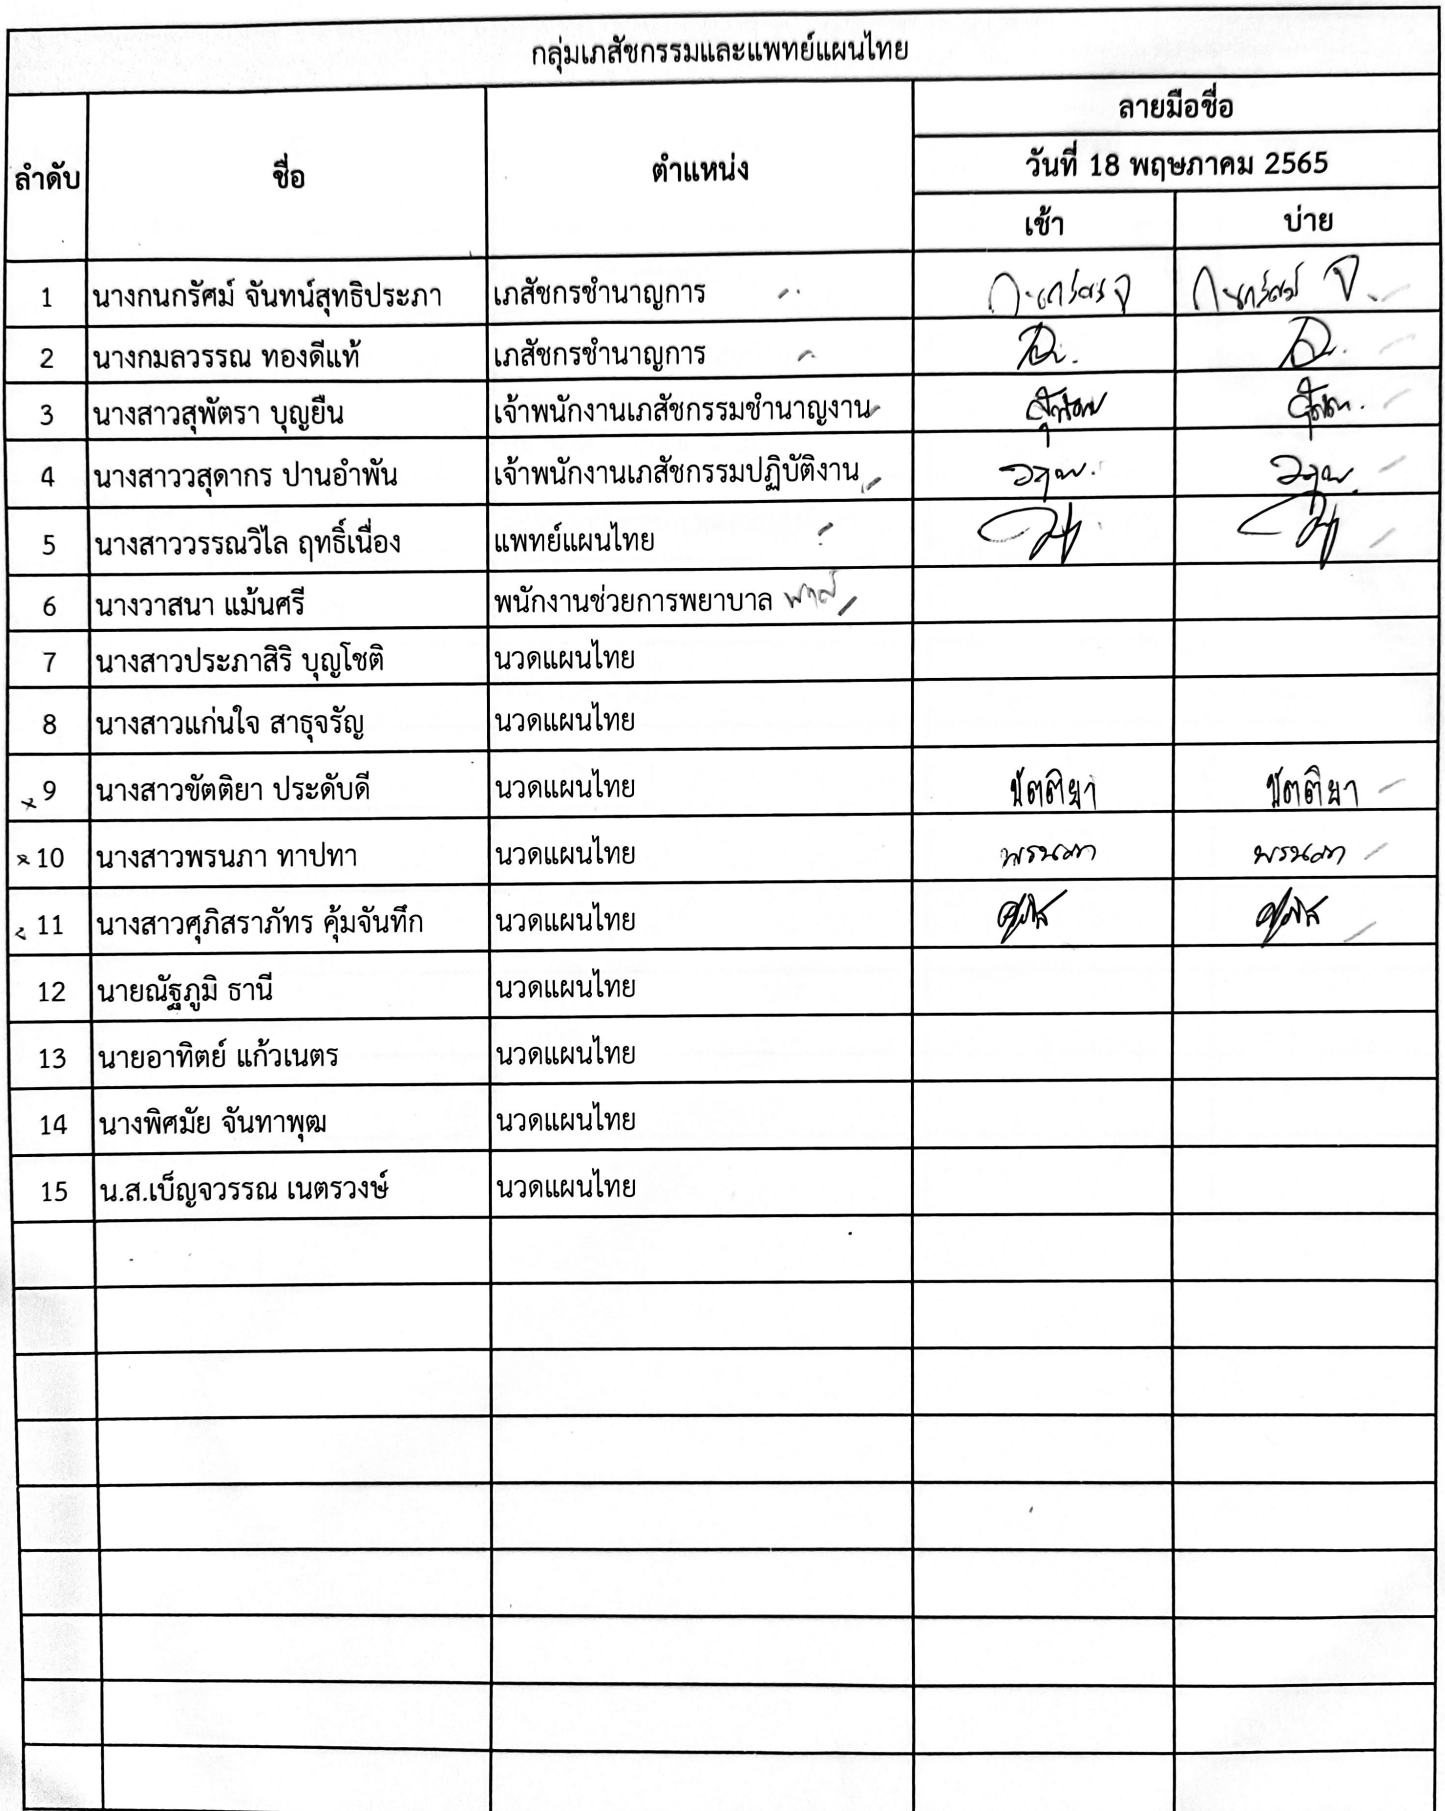 กลุ่มเภสัชกรรมและแพทย์แผนไทย
ลำดับ ชื่อ ตำแหน่ง ลายมือชื่อ
วันที่ 18 พฤษภาคม 2565
เช้า บ่าย
1 นางกนกรัศม์ จันทน์สุทธิประภา เภสัชกรชำนาญการ
2 นางกมลวรรณ ทองดีแท้ เภสัชกรชำนาญการ
3 นางสาวสุพัตรา บุญยืน เจ้าพนักงานเภสัชกรรมชำนาญงาน
4 นางสาววสุดากร ปานอำพัน เจ้าพนักงานเภสัชกรรมปฏิบัติงาน
5 นางสาววรรณวิไล ฤทธิ์เนื่อง แพทย์แผนไทย
6 นางวาสนา แม้นศรี พนักงานช่วยการพยาบาล
7 นางสาวประภาสิริ บุญโชติ นวดแผนไทย
8 นางสาวแก่นใจ สาธุจรัญ นวดแผนไทย
9 นางสาวขัตติยา ประดับดี นวดแผนไทย ขัตติยา ขัตติยา
10 นางสาวพรนภา ทาปทา นวดแผนไทย พรนภา พรนภา
11 นางสาวศุภิสราภัทร คุ้มจันทึก นวดแผนไทย
12 นายณัฐภูมิ ธานี นวดแผนไทย
13 นายอาทิตย์ แก้วเนตร นวดแผนไทย
14 นางพิศมัย จันทาพุฒ นวดแผนไทย
15 น.ส.เบ็ญจวรรณ เนตรวงษ์ นวดแผนไทย